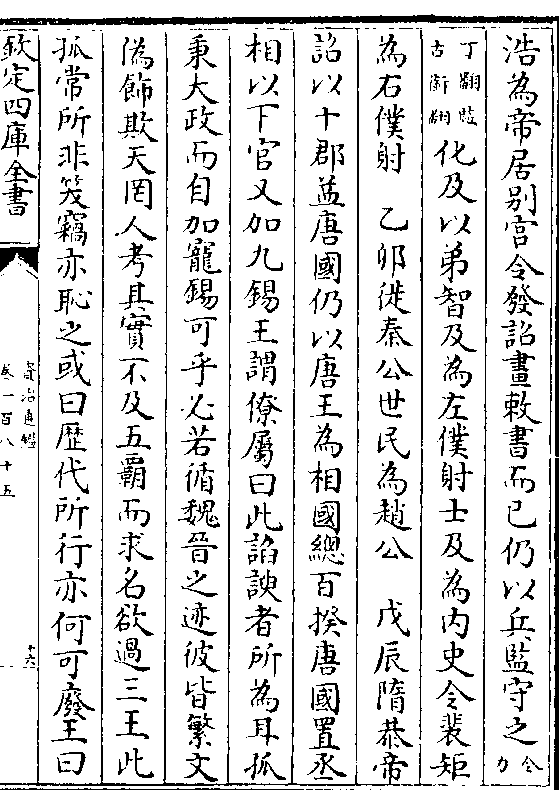 浩為帝居别宫令發詔畫敕書而已仍以兵監守之令力
丁翻監
古銜翻
化及以弟智及為左僕射士及為内史令裴矩
為右僕射　乙卯徙秦公世民為趙公　戊辰隋恭帝
詔以十郡益唐國仍以唐王為相國總百揆唐國置丞
相以下官又加九錫王謂僚屬曰此諂諛者所為耳孤
秉大政而自加寵錫可乎必若循魏晉之迹彼皆繁文
偽飾欺天罔人考其實不及五霸而求名欲過三王此
孤常所非笑竊亦恥之或曰歷代所行亦何可廢王曰
欽定四庫全書
資治通鑑
卷一百八十五
十六